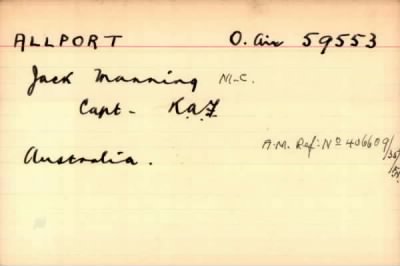 ALLPORT O. Air 59553
Jack Manning M.C.
Capt - R.A.F
Australia.
A.M. Ref: Nº 406609/36/